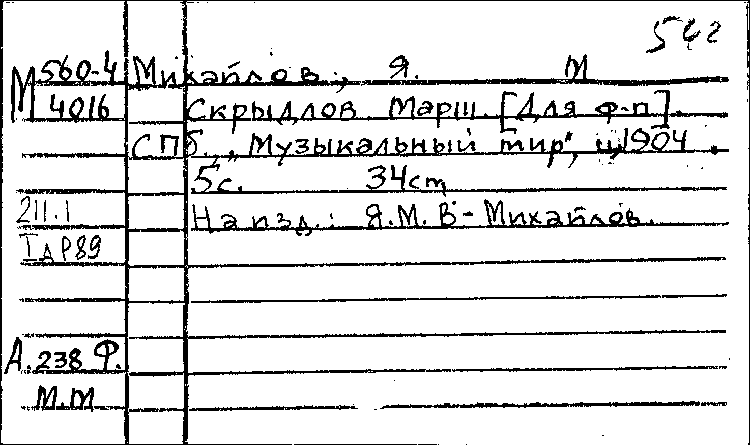 542
М 560-4 Михайлов, Я. М
4016 Скрыдлов. Марш. [Для ф-п].
СПб., „Музыкальный мир", ц. 1904.
5с. 34cm
211.1 На изд.: Я.М.В-Михайлов.
I д Р89
А.238 Ф.
М.М